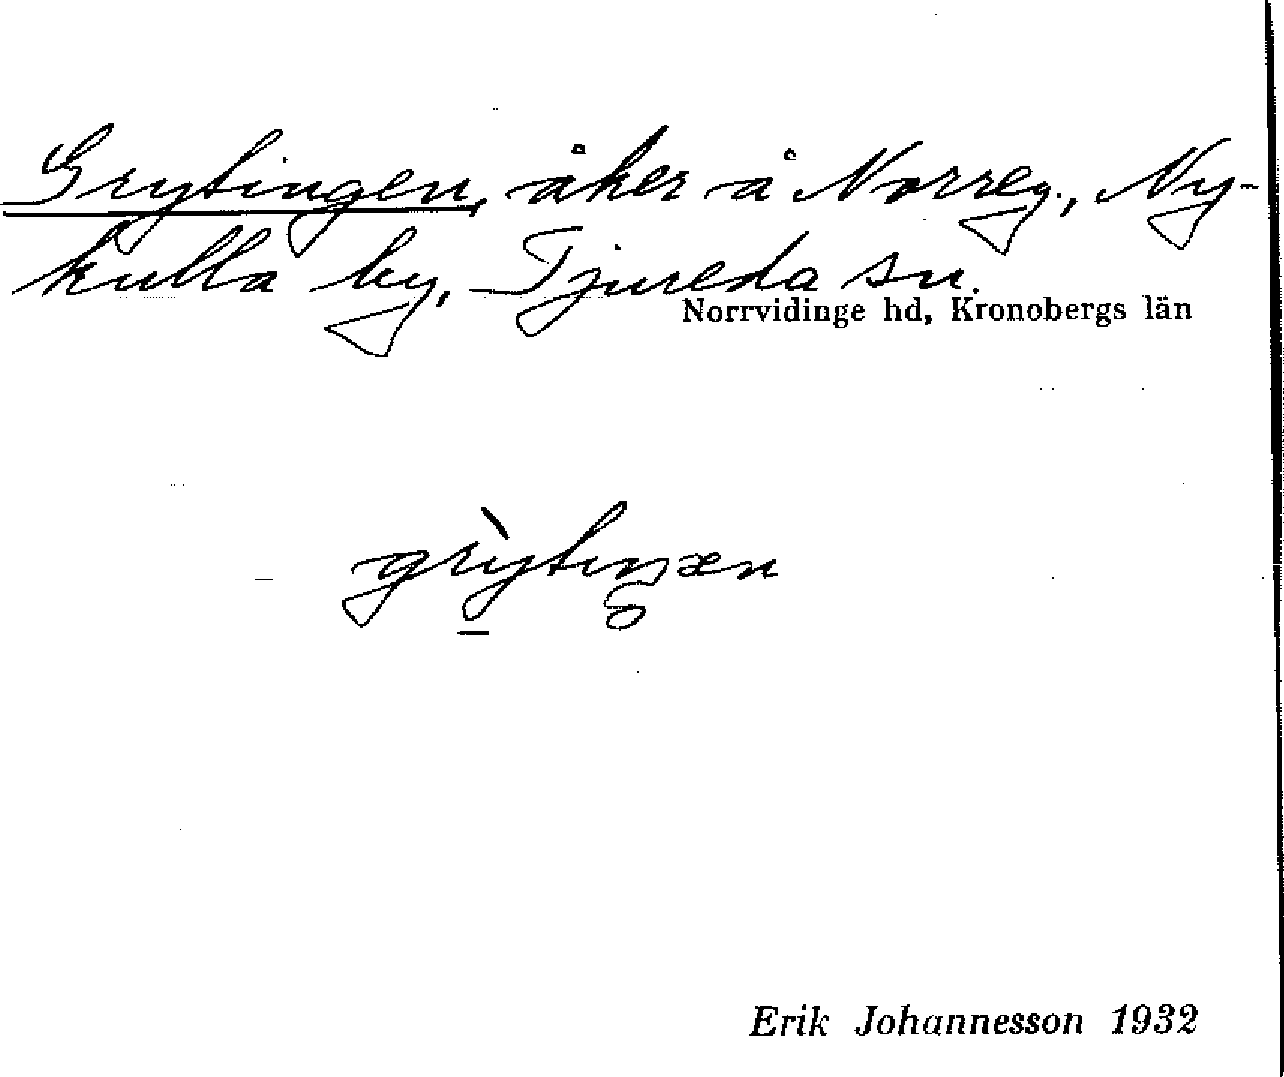 Grytingen, åker å Norreg., Ny-
kulla by, Tjureda sn.
Norrvidinge hd, Kronobergs län
grỳtiŋæn
Erik Johannesson 1932